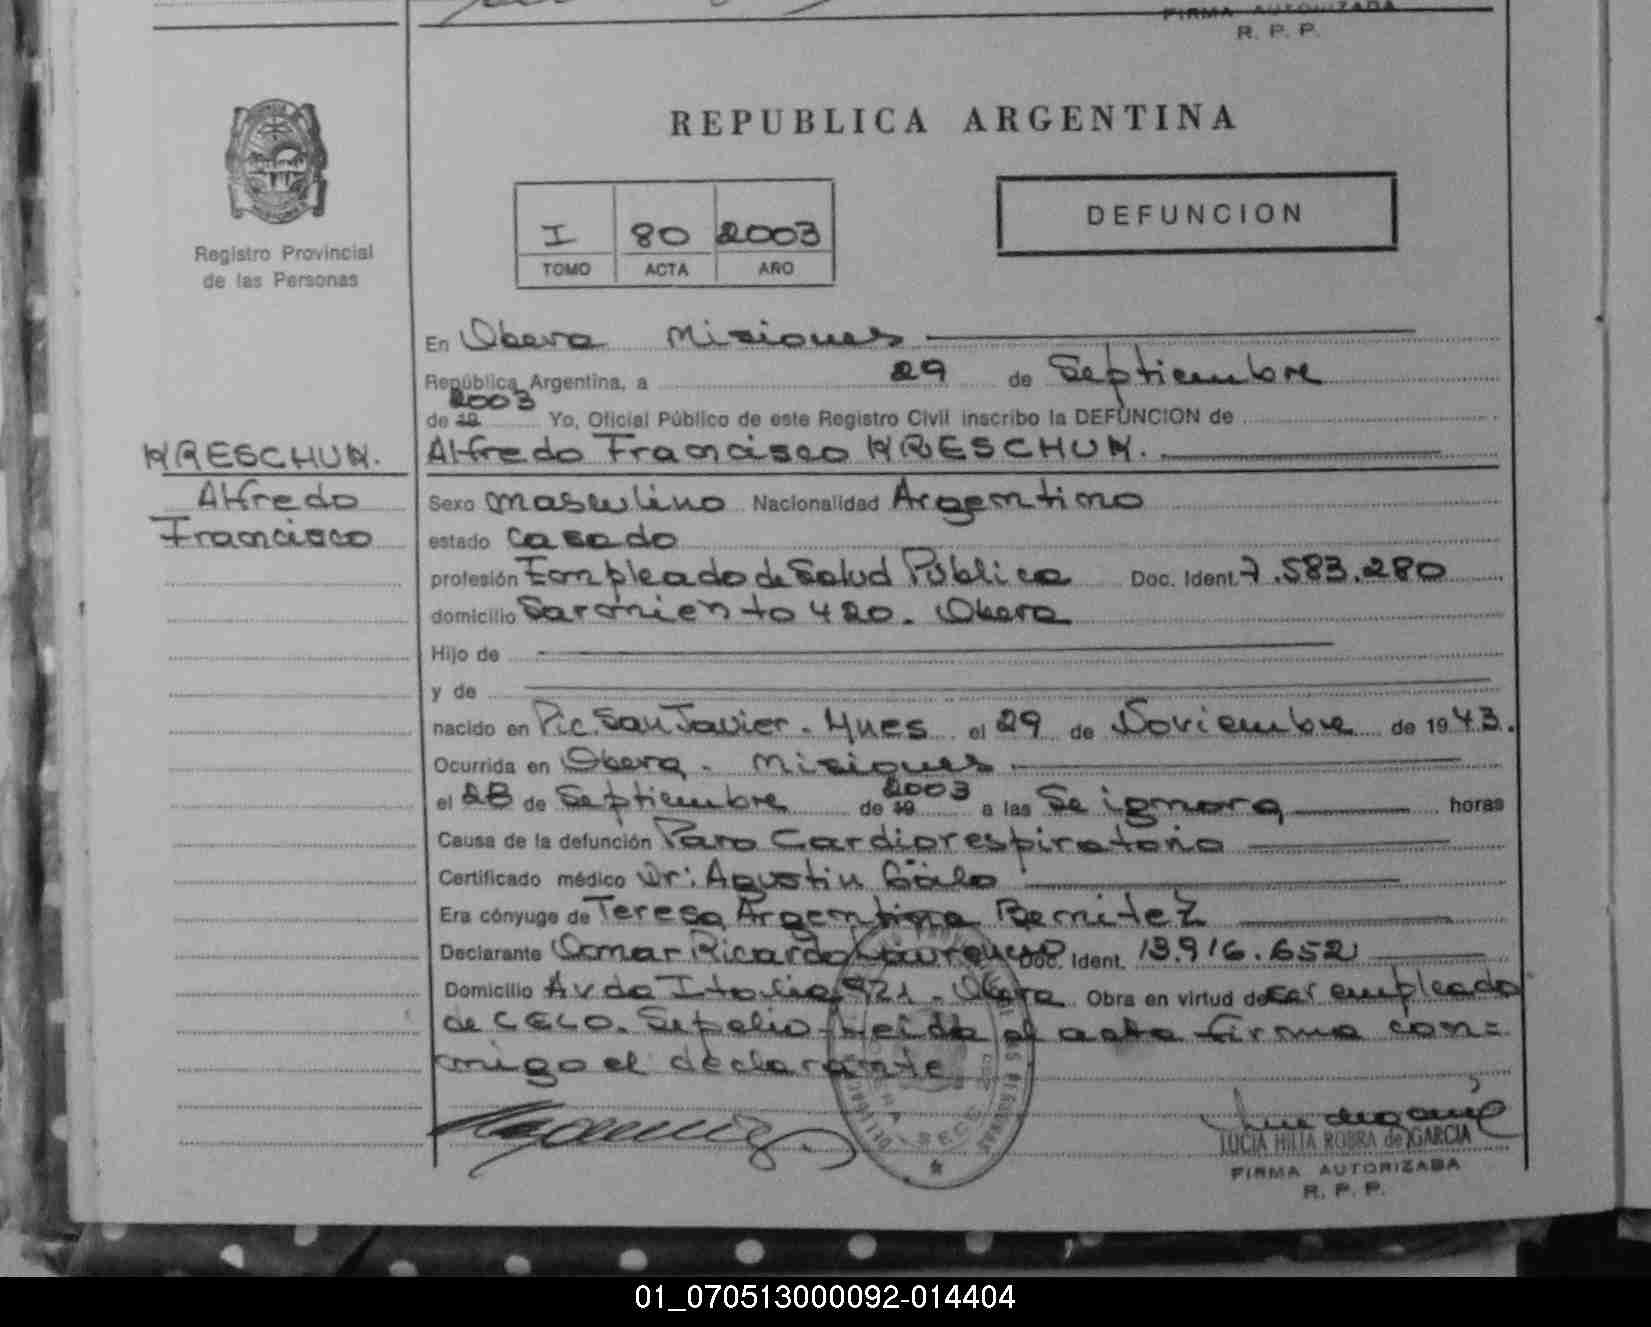 FIRMA AUTORIZADA
R. P. P.
REPUBLICA ARGENTINA
DEFUNCION
I 80 2003
TOMO ACTA AÑO
Registro Provincial
de las Personas
En Obera Misiones
República Argentina, a 29 de Septiembre
2003
de 19 Yo, Oficial Público de este Registro Civil inscribo la DEFUNCION de
KRESCHUK. Alfredo Francisco KRESCHUK.
Alfredo
Francisco
Sexo masculino Nacionalidad Argentino
estado casado
profesión Empleado de Salud Pública Doc. Ident. 7.583.280
domicilio Sarmiento 420. Obera
Hijo de
y de
nacido en Pic. San Javier. Mnes el 29 de Noviembre de 1943.
Ocurrida en Obera. Misiones
el 28 de Septiembre de 19 2003 a las Se ignora horas
Causa de la defunción Paro Cardiorespiratorio
Certificado médico Dr: Agustin
Era cónyuge de Teresa Argentina Bernitez
Declarante Omar Ricardo Doc. Ident. 13.916.652
Domicilio Avda Italia 921. Obera Obra en virtud de ser empleado
de CELO. Sepelio leida el acta firma con=
migo el declarante
LUCIA HILIA ROBRA de GARCIA
FIRMA AUTORIZADA
R. P. P.
01_070513000092-014404